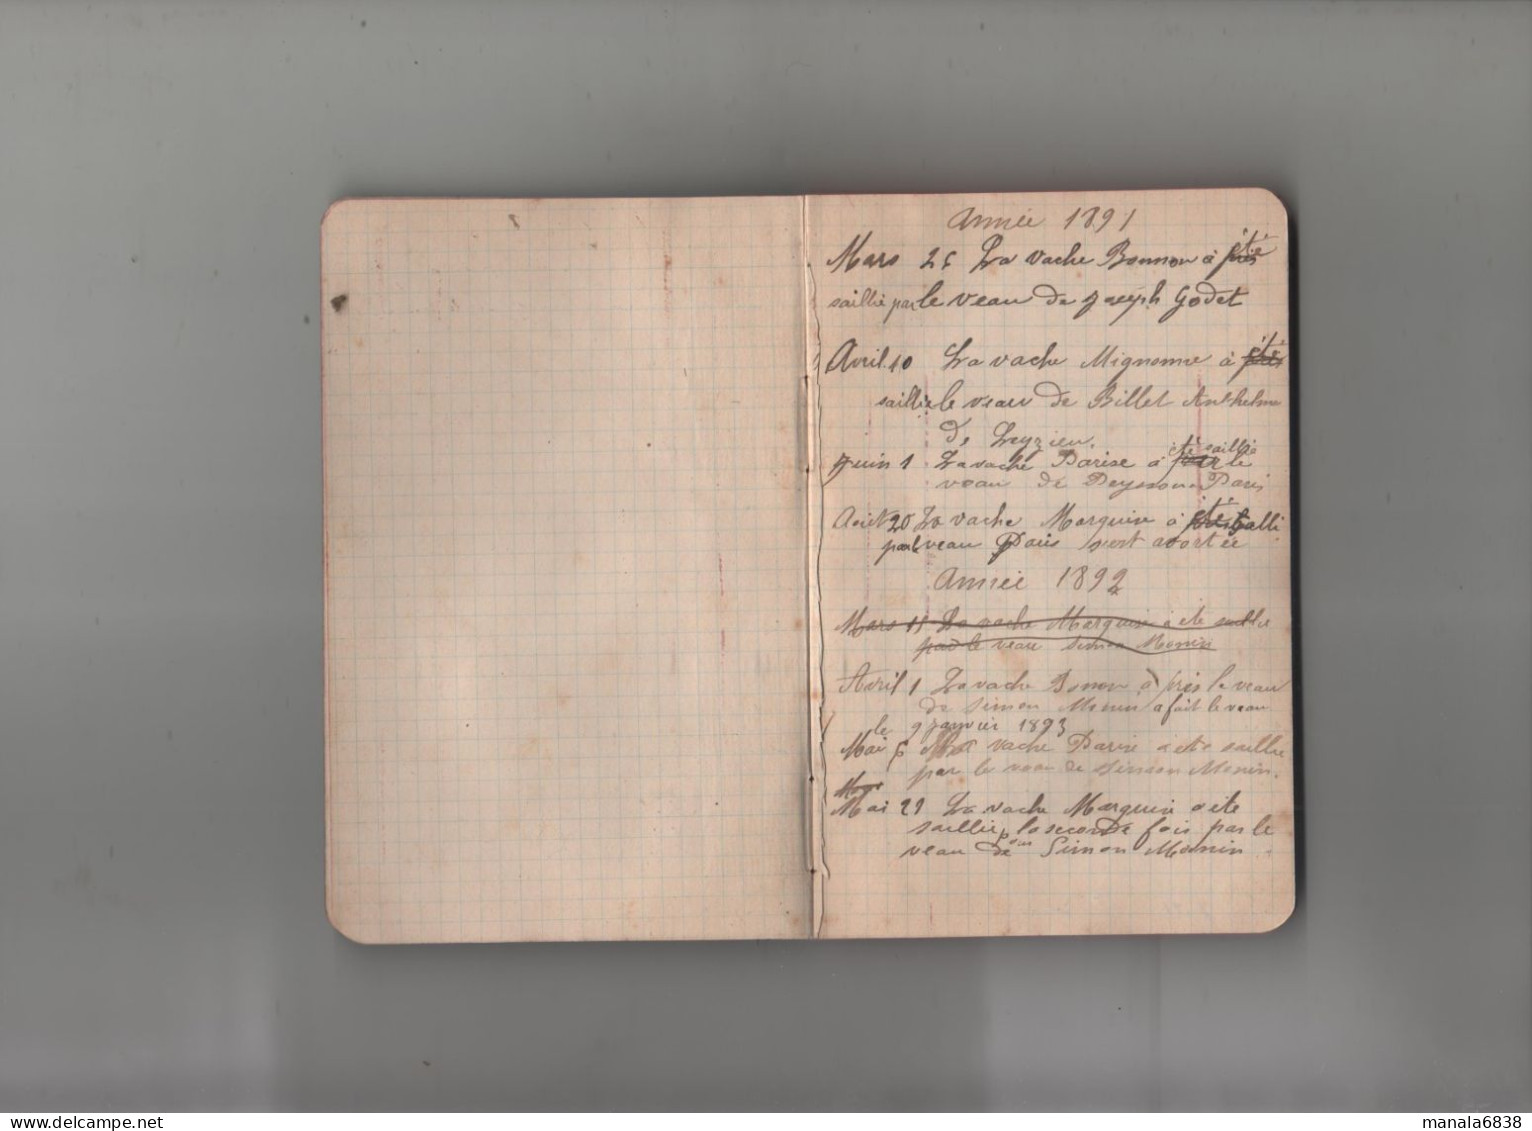 Année 1891
Mars 25 La vache Bonnon à été
saillie par le veau de Joseph Godet
Avril 10 La vache Mignonne à été
saillie le veau de Billet Anthelme
de Leyzieu.
Juin 1 La vache Parise à été saillie par le
veau de Peysson Paris
Août 20 La vache Marquise à été salli
par veau Paris s'est avortée
Année 1892
Mars 11 La vache Marquise à été saillie
par le veau Simon Monin
Avril 1 La vache Bonon à pris le veau
de Simon Monin a fait le veau
le 9 janvier 1893
Mai 6 La vache Parise a été saillie
par le veau de Simon Monin.
Mai 29 La vache Marquise a été
saillie pour la seconde fois par le
veau de Simon Monin
manala6838